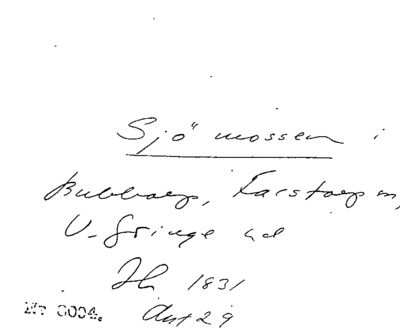 Sjö mossen i
Bubbarp, Farstorp m,
V. Göinge hd
Jb 1831
Ant 29
Nr 8004.